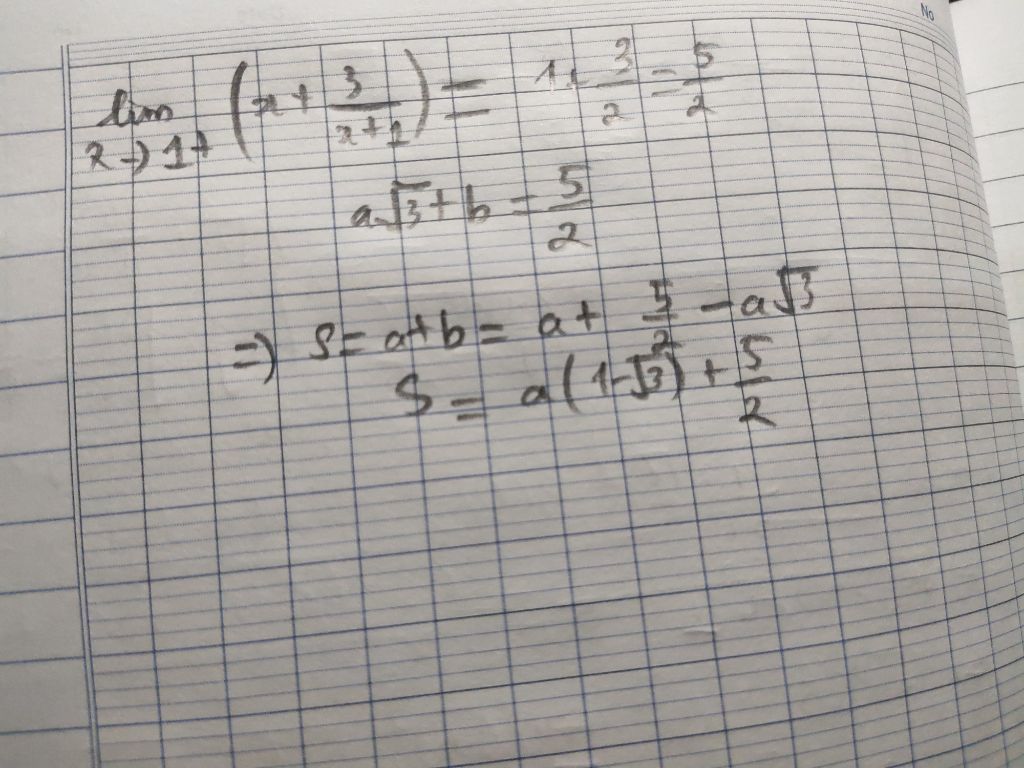 No
lim (x + 3/(x+1)) = 1 + 3/2 = 5/2
x → 1+
a√3 + b = 5/2
⇒ S = a+b = a + 5/2 − a√3
S = a(1−√3) + 5/2